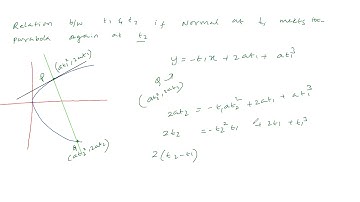 Relation b/w t₁ & t₂ if Normal at t₁ meets the
parabola again at t₂
P (at₁², 2at₁)
Q
(at₂², 2at₂)
y = -t₁x + 2at₁ + at₁³
Q
(at₂², 2at₂)
2at₂ = -t₁at₂² + 2at₁ + at₁³
2t₂ = -t₂²t₁ + 2t₁ + t₁³
2(t₂-t₁)